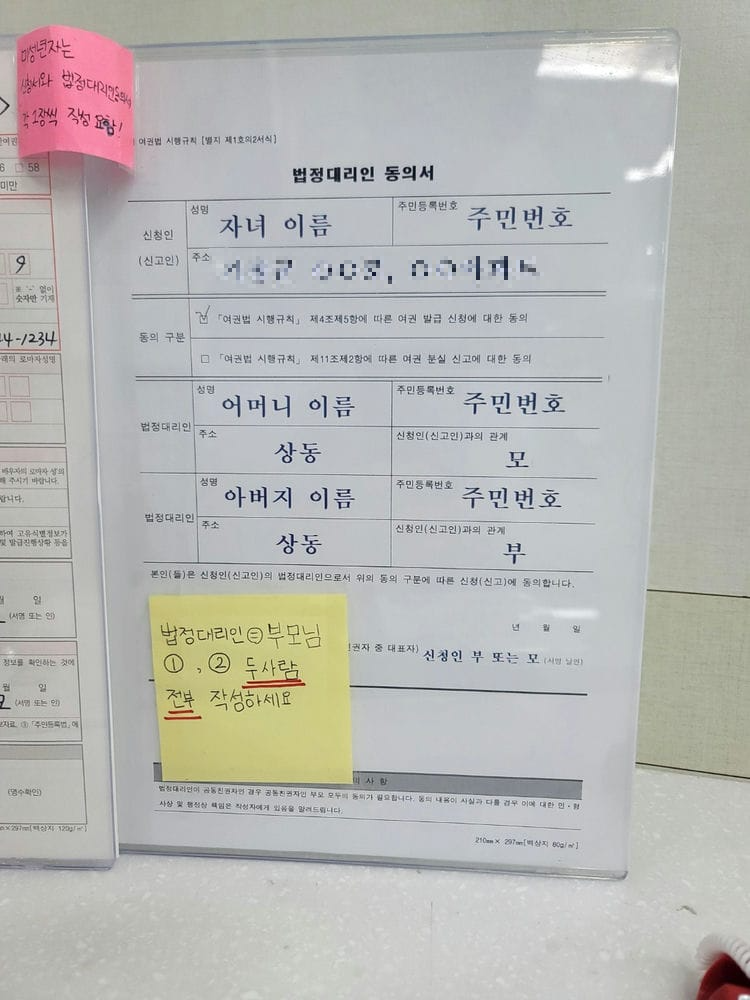 미성년자는
신청서와 법정대리인동의서
각 1장씩 작성 요함!
58
미만
9
※ '-' 없이
숫자만 기재
4-1234
래의 로마자성명
배우자의 로마자 성'의
해 주시기 바랍니다.
랍니다.
하여 고유식별정보가
및 발급진행상황 등을
월 일
(서명 또는 인)
정보를 확인하는 것에
월 일
(서명 또는 인)
(영수확인)
297㎜[백상지 120g/㎡]
여권법 시행규칙 [별지 제1호의2서식]
법정대리인 동의서
신청인
(신고인)
성명
자녀 이름
주민등록번호
주민번호
주소
동의 구분
「여권법 시행규칙」 제4조제5항에 따른 여권 발급 신청에 대한 동의
□ 「여권법 시행규칙」 제11조제2항에 따른 여권 분실 신고에 대한 동의
법정대리인
성명
어머니 이름
주민등록번호
주민번호
주소
상동
신청인(신고인)과의 관계
모
법정대리인
성명
아버지 이름
주민등록번호
주민번호
주소
상동
신청인(신고인)과의 관계
부
본인(들)은 신청인(신고인)의 법정대리인으로서 위의 동의 구분에 따른 신청(신고)에 동의합니다.
년 월 일
권자 중 대표자) 신청인 부 또는 모 (서명 날인)
법정대리인 = 부모님
①, ② 두사람
전부 작성하세요
의 사 항
법정대리인이 공동친권자인 경우 공동친권자인 부모 모두의 동의가 필요합니다. 동의 내용이 사실과 다를 경우 이에 대한 민·형
사상 및 행정상 책임은 작성자에게 있음을 알려드립니다.
210㎜× 297㎜[백상지 80g/㎡]